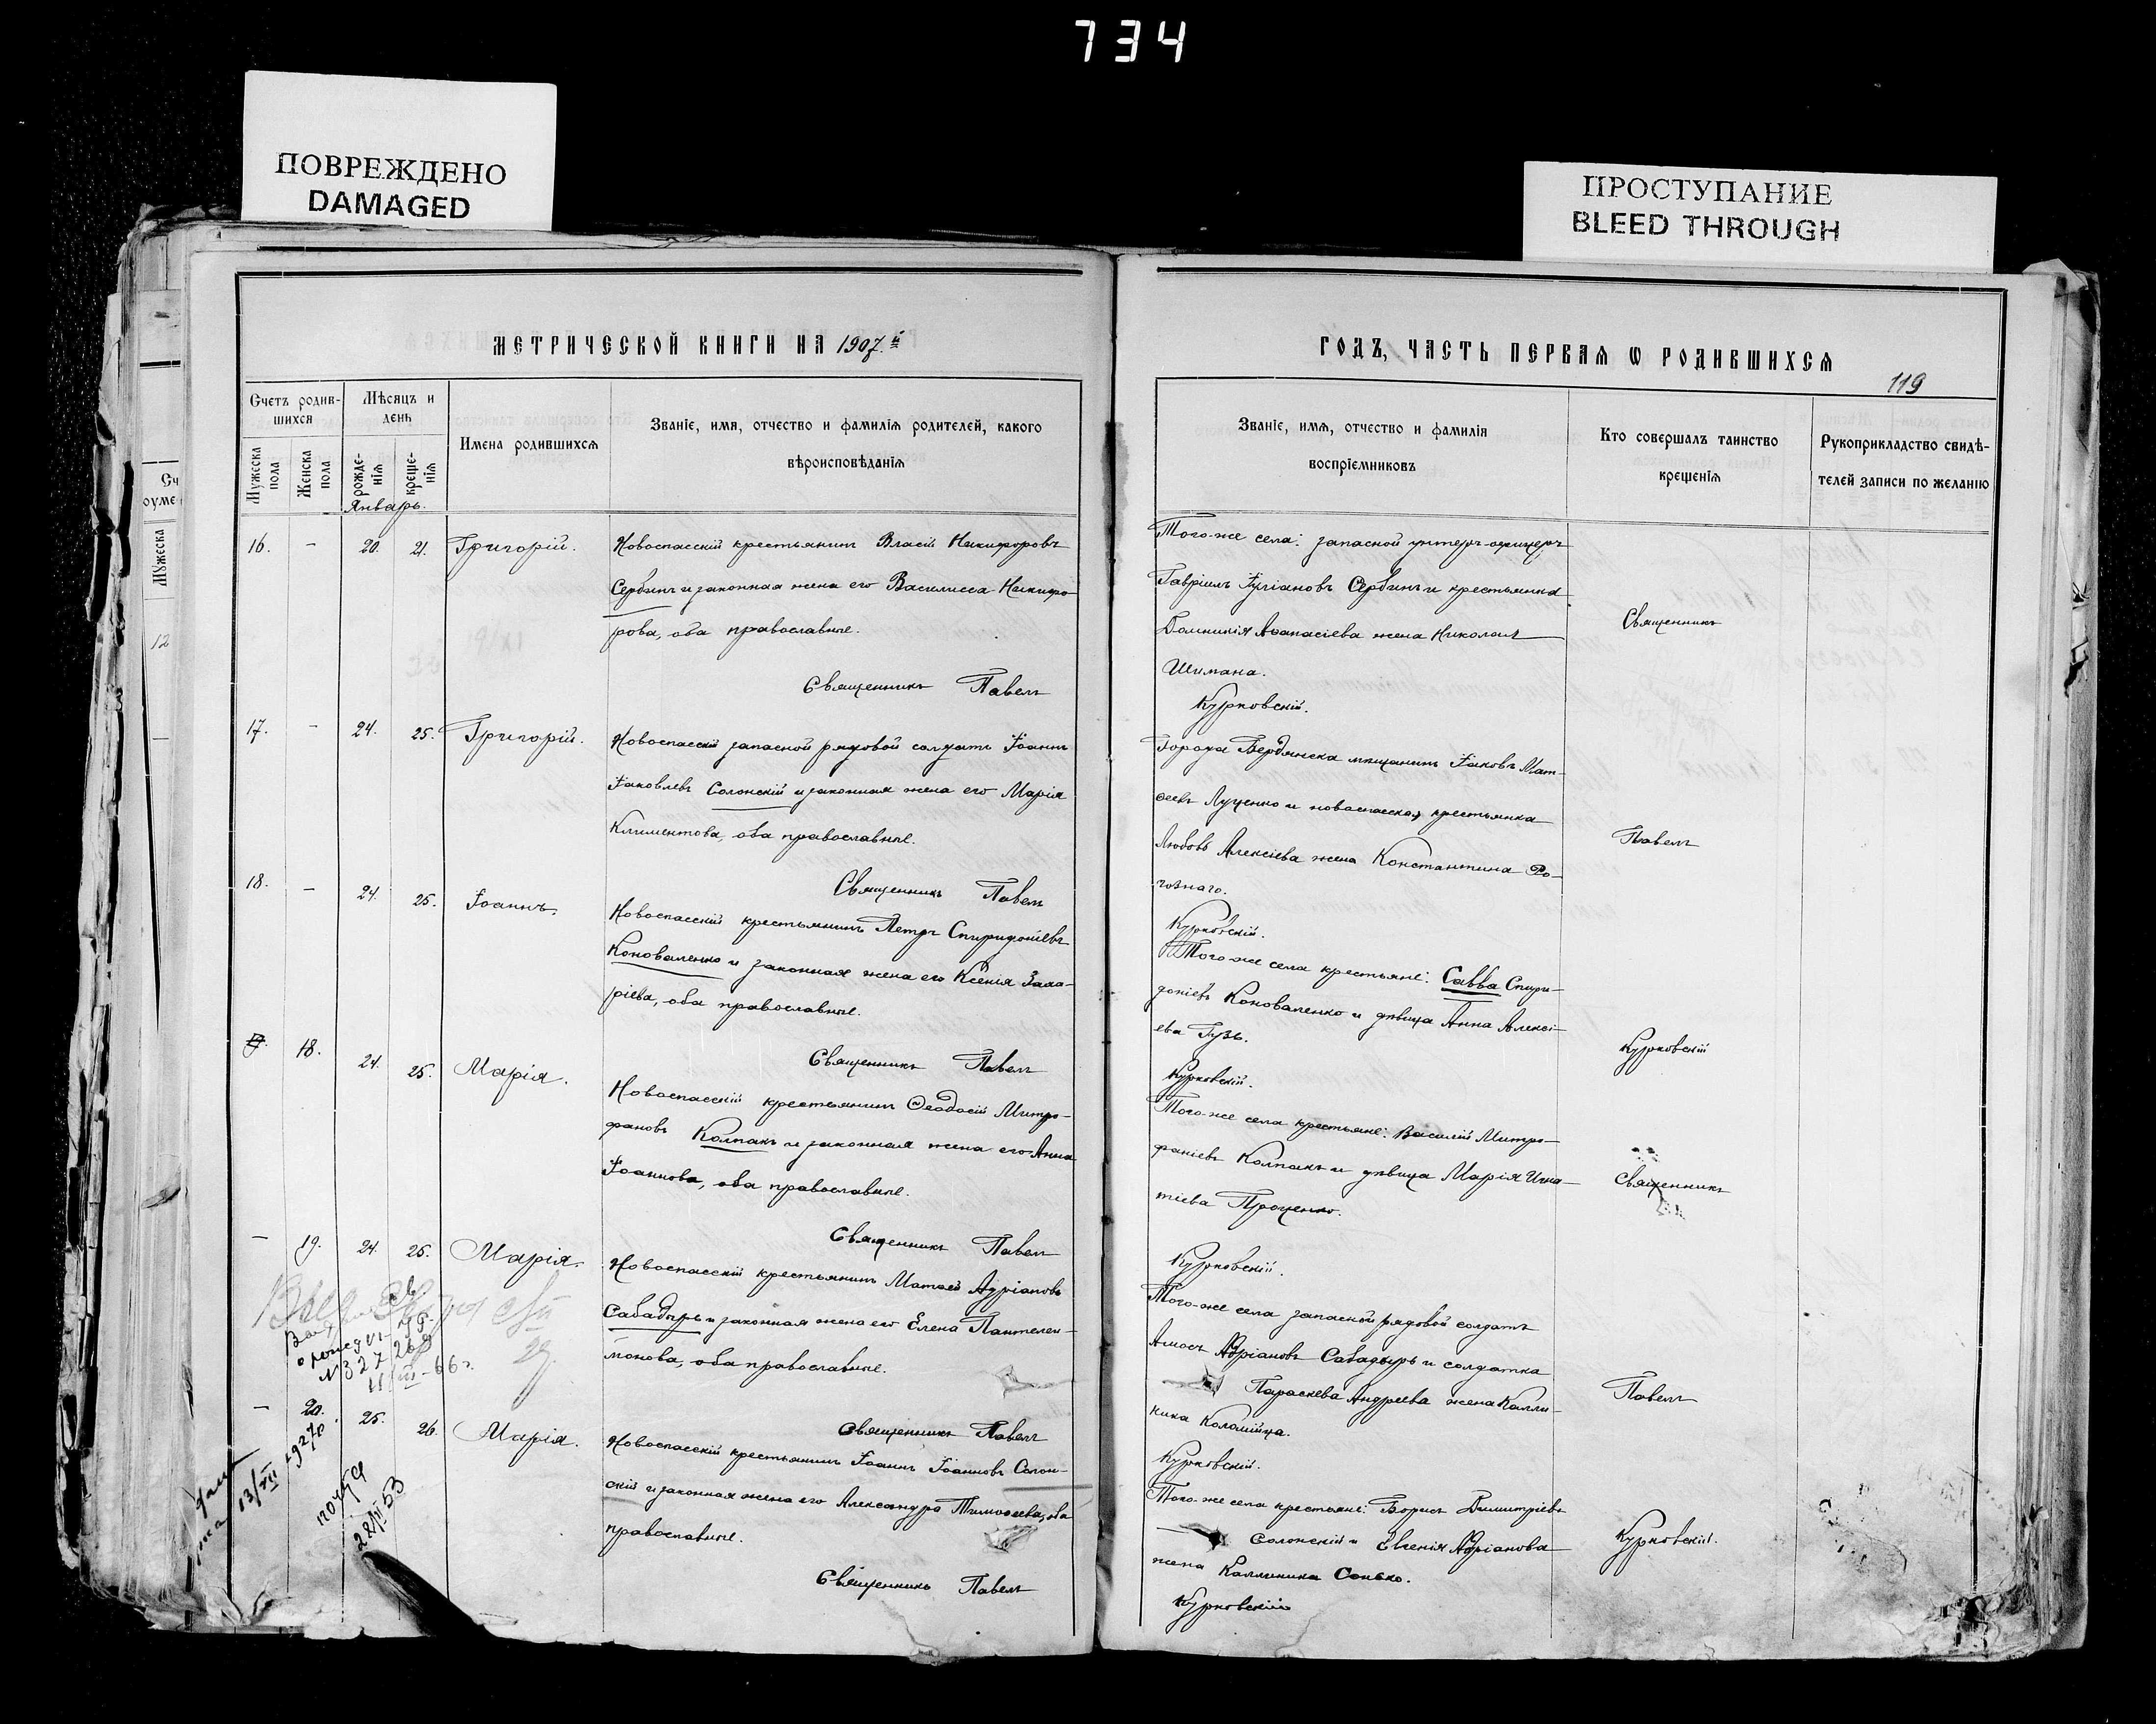 734
ПОВРЕЖДЕНО
DAMAGED
ПРОСТУПАНИЕ
BLEED THROUGH
МЕТРИЧЕСКОЙ КНИГИ НА 1907.й
Счетъ родив-
шихся
Мѣсяцъ и
день
Имена родившихся
Званіе, имя, отчество и фамилія родителей, какого
вѣроисповѣданія
Мужеска
пола
Женска
пола
рожде-
нія
креще-
нія
Январь.
16. - 20. 21. Григорій. Новоспасскій крестьянинъ Власій Никифоровъ
Сербинъ и законная жена его Василисса Никифо-
рова, оба православные.
Священникъ Павелъ
17. - 24. 25. Григорій. Новоспасскій запасной рядовой солдатъ Іоаннъ
Іаковлевъ Солонскій и законная жена его Марія
Климентова, оба православные.
Священникъ Павелъ
18. - 24. 25. Іоаннъ. Новоспасскій крестьянинъ Петръ Спиридоніевъ
Коноваленко и законная жена его Ксенія Заха-
ріева, оба православные.
Священникъ Павелъ
18. 24. 25. Марія. Новоспасскій крестьянинъ Ѳеодосій Митро-
фановъ Колпакъ и законная жена его Анна
Іоаннова, оба православные.
Священникъ Павелъ
- 19. 24. 25. Марія. Новоспасскій крестьянинъ Матѳей Адріановъ
Сабадырь и законная жена его Елена Пантелеи-
монова, оба православные.
Священникъ Павелъ
- 20. 25. 26. Марія. Новоспасскій крестьянинъ Іоаннъ Іоанновъ Солон-
скій и законная жена его Александра Тимоѳеева, оба
православные.
Священникъ Павелъ
13/VII 1927
22/III 53
ГОДЪ, ЧАСТЬ ПЕРВАЯ Ѡ РОДИВШИХСЯ
119
Званіе, имя, отчество и фамилія
воспріемниковъ
Кто совершалъ таинство
крещенія
Рукоприкладство свидѣ-
телей записи по желанію
Того-же села: запасной унтеръ-офицеръ
Гавріилъ Іуліановъ Сербинъ и крестьянка
Домникія Аѳанасіева жена Николая
Шимана.
Курковскій.
Города Бердянска мѣщанинъ Іаковъ Мат-
ѳеевъ Луценко и новоспасская крестьянка
Любовь Алексіева жена Константина Ро-
гознаго.
Курковскій.
Того-же села крестьяне: Савва Спири-
доніевъ Коноваленко и дѣвица Анна Алексі-
ева Гузь.
Курковскій.
Того-же села крестьяне: Василій Митро-
фаніевъ Колпакъ и дѣвица Марія Игна-
тіева Проценко.
Курковскій.
Того-же села запасной рядовой солдатъ
Амосъ Адріановъ Сабадырь и солдатка
Параскева Андреева жена Калли-
ника Коломійца.
Курковскій.
Того-же села крестьяне: Борисъ Димитріевъ
Солонскій и Евгенія Адріанова
жена Каллиника Сонько.
Курковскій
Священникъ
Павелъ
Курковскій
Священникъ
Павелъ
Курковскій.